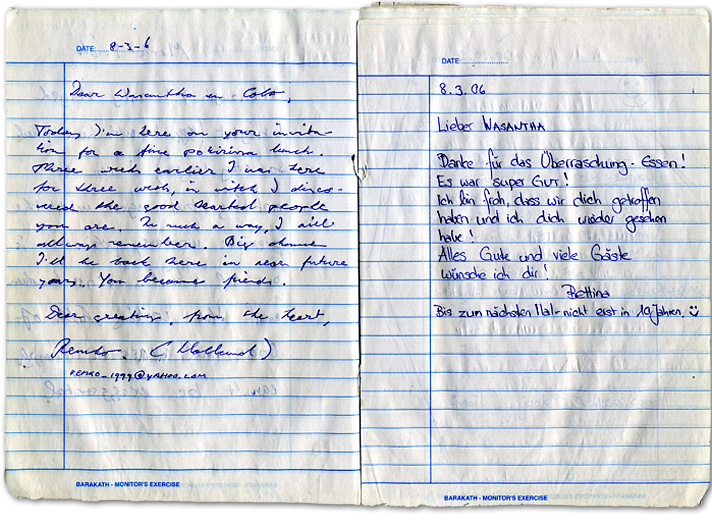 DATE: 8-3-6
Dear Wasantha en Coto,
Today I'm here on your invita-
tion for a fine lunch.
Three week earlier I was here
for three week, in witch I disco-
vered the good hearted people
you are. In such a way, I will
allways remember. Big chance
I'll be back here in near future
years. You became friends.
Dear greeting, from the heart,
Remko. (Holland)
REMKO_1999@YAHOO.COM
BARAKATH - MONITOR'S EXERCISE
DATE:
8.3.06
Lieber WASANTHA
Danke für das Überraschung-Essen!
Es war super GUT!
Ich bin froh, dass wir dich getroffen
haben und ich dich wieder gesehen
habe!
Alles Gute und viele Gäste
wünsche ich dir!
Bettina
Bis zum nächsten Mal-nicht erst in 10 Jahren. ☺
BARAKATH - MONITOR'S EXERCISE